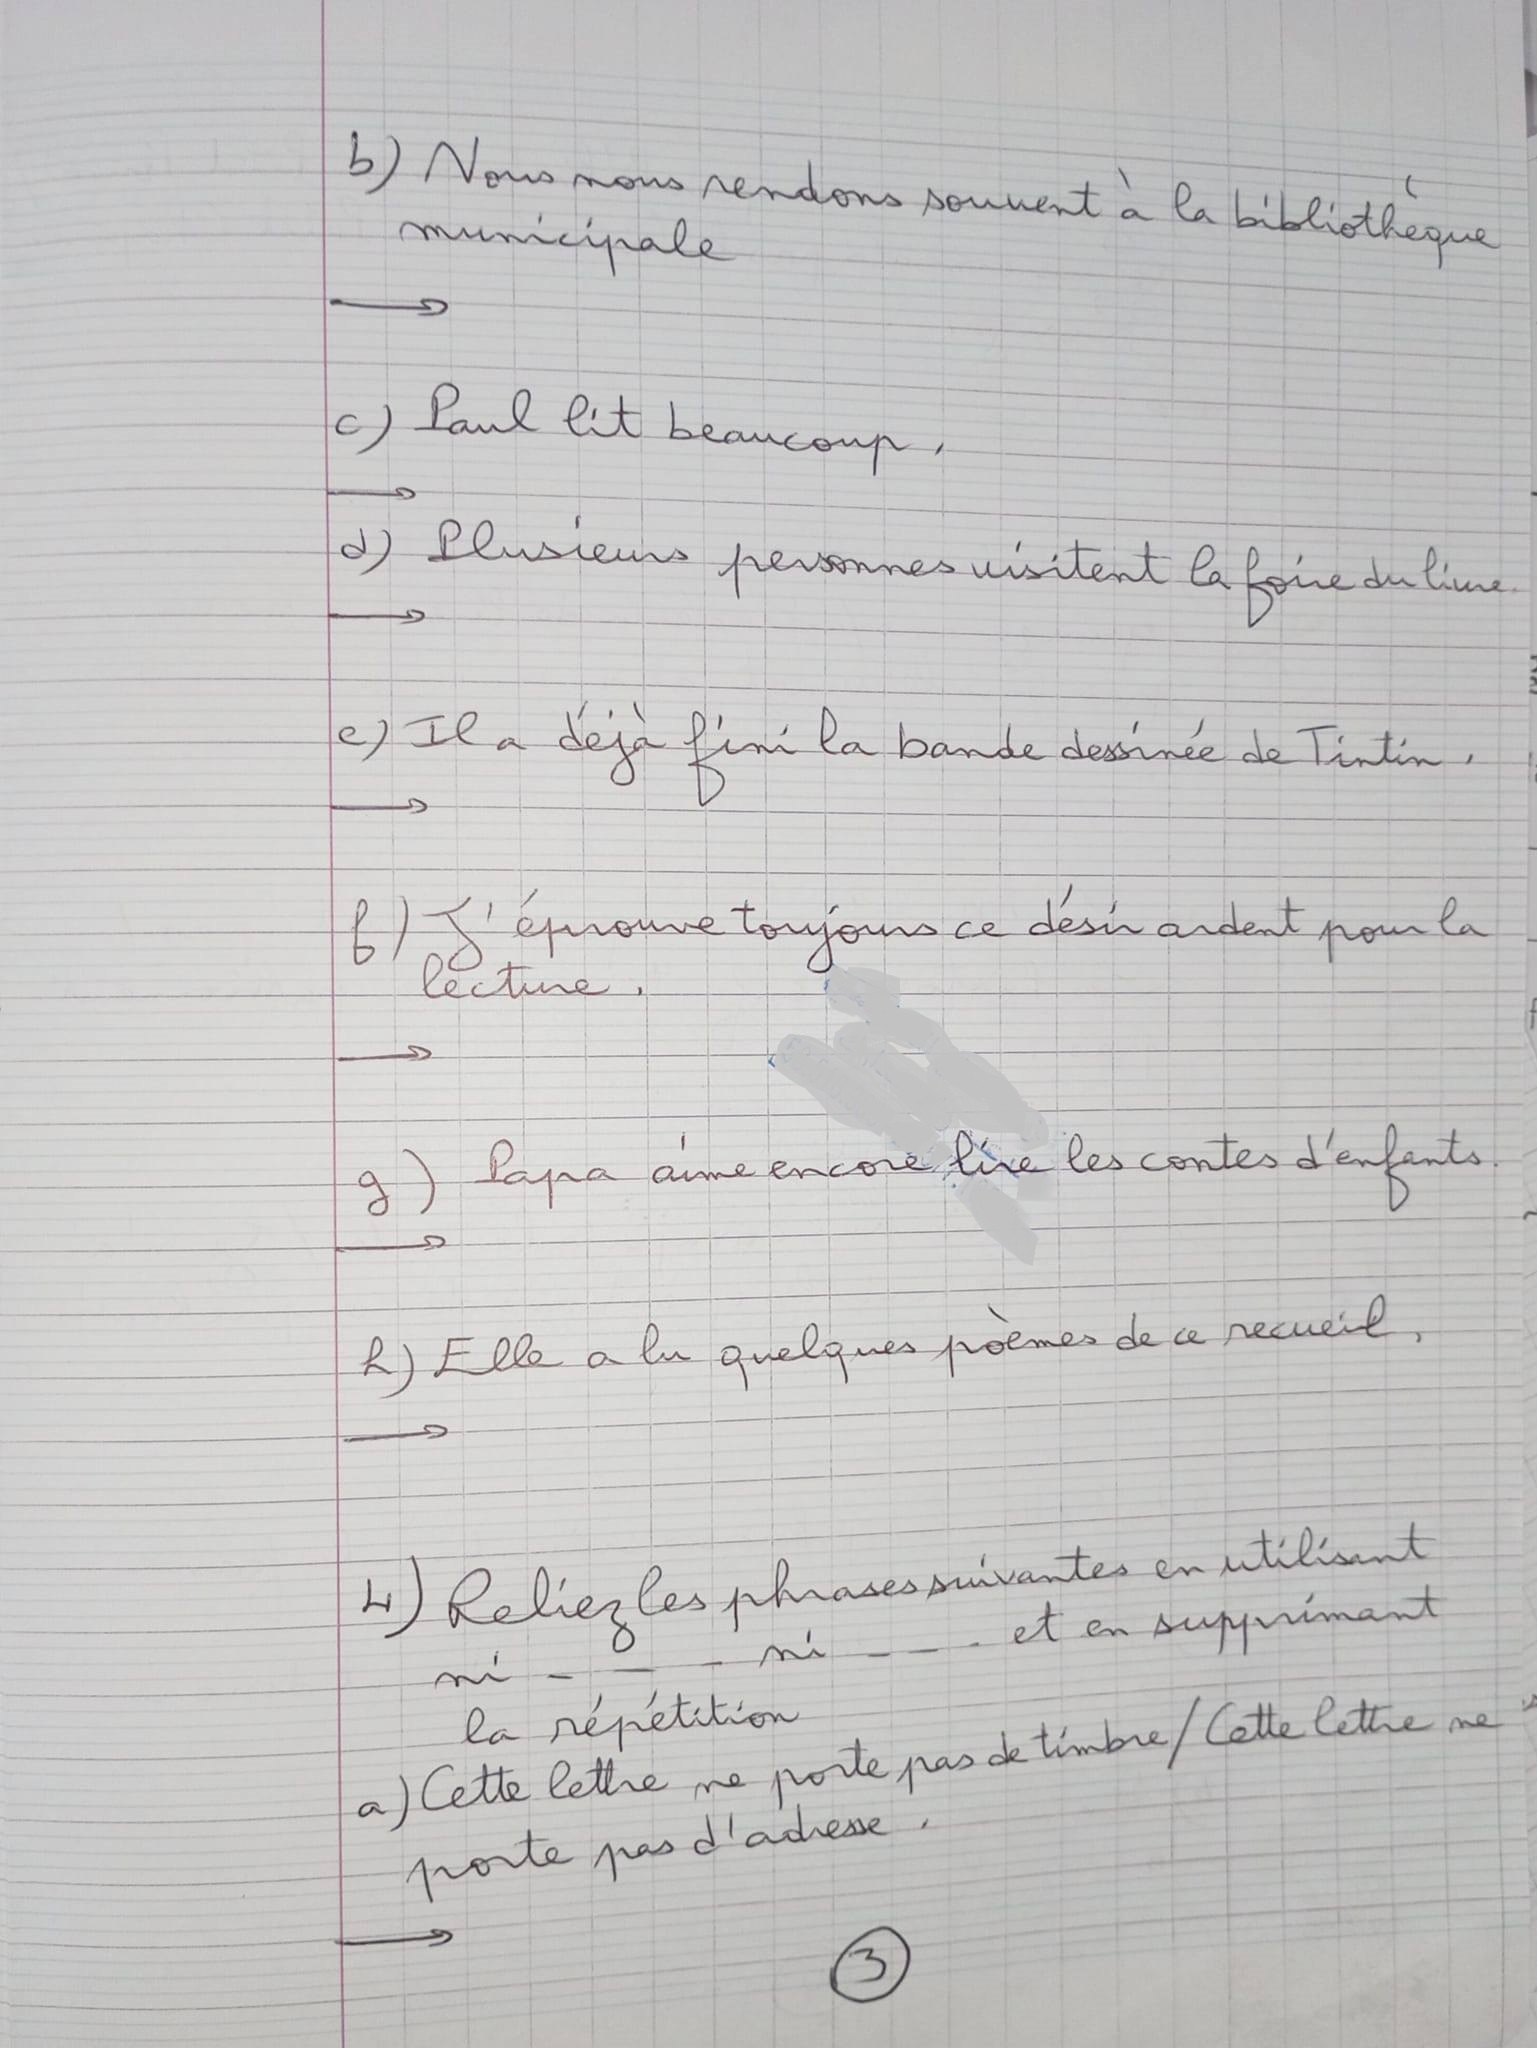 b) Nous nous rendons souvent à la bibliothèque
municipale
→
c) Paul lit beaucoup.
→
d) Plusieurs personnes visitent la foire du livre.
→
e) Il a déjà fini la bande dessinée de Tintin.
→
f) J'éprouve toujours ce désir ardent pour la
lecture.
→
g) Papa aime encore lire les contes d'enfants.
→
h) Elle a lu quelques poèmes de ce recueil.
→
4) Reliez les phrases suivantes en utilisant
ni - - - ni - - - et en supprimant
la répétition
a) Cette lettre ne porte pas de timbre / Cette lettre ne
porte pas d'adresse.
→
3